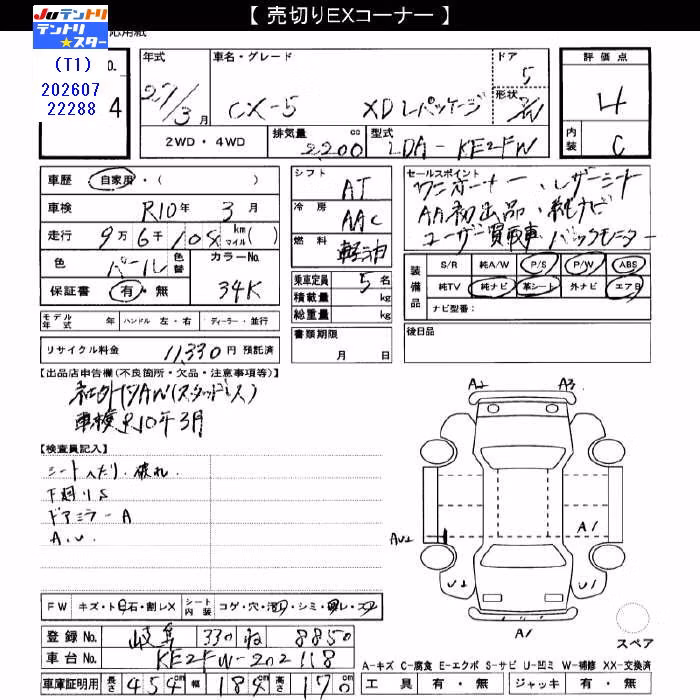 【 売切りEXコーナー 】
JUテントリ
テントリ★スター
(T1)
202607
22288
4
年式 27/3月
車名・グレード CX-5 XD Lパッケージ
ドア 5
形状
2WD・4WD
排気量 2200 cc
型式 LDA-KE2FW
評価点 4
内装 C
車歴 自家用・( )
車検 R10年 3月
走行 9万6千108 km マイル( )
色 パール 色替
カラーNo. 34K
保証書 有・無
シフト AT
冷房 AAC
燃料 軽油
乗車定員 5名
積載量 kg
総重量 kg
書類期限
月 日
セールスポイント
ワンオーナー、レザーシート
AA初出品、純ナビ
ユーザー買取車 バックモニター
装備品
S/R 純A/W P/S P/W ABS
純TV 純ナビ 革シート 外ナビ エアB
ナビ型番:
後日品
モデル年式 年 ハンドル 左・右 ディーラー・並行
リサイクル料金 11,330円 預託済
【出品店申告欄(不良箇所・欠品・注意事項等)】
社外17AW(スタッドレス)
車検R10年3月
【検査員記入】
シートヘたり、破れ.
下廻りS
ドアミラーA
A.U.
A2 A3
AU2
A1
U1 U1
A1
スペア
FW キズ・ト石・割レX
シート内装 コゲ・穴・汚・シミ・レ・
登録No. 岐阜 330 ね 8850
車台No. KE2FW-202118
A-キズ C-腐食 E-エクボ S-サビ U-凹ミ W-補修 XX-交換済
車庫証明用 長さ 454cm 幅 184cm 高さ 170cm
工具 有・無 ジャッキ 有・無